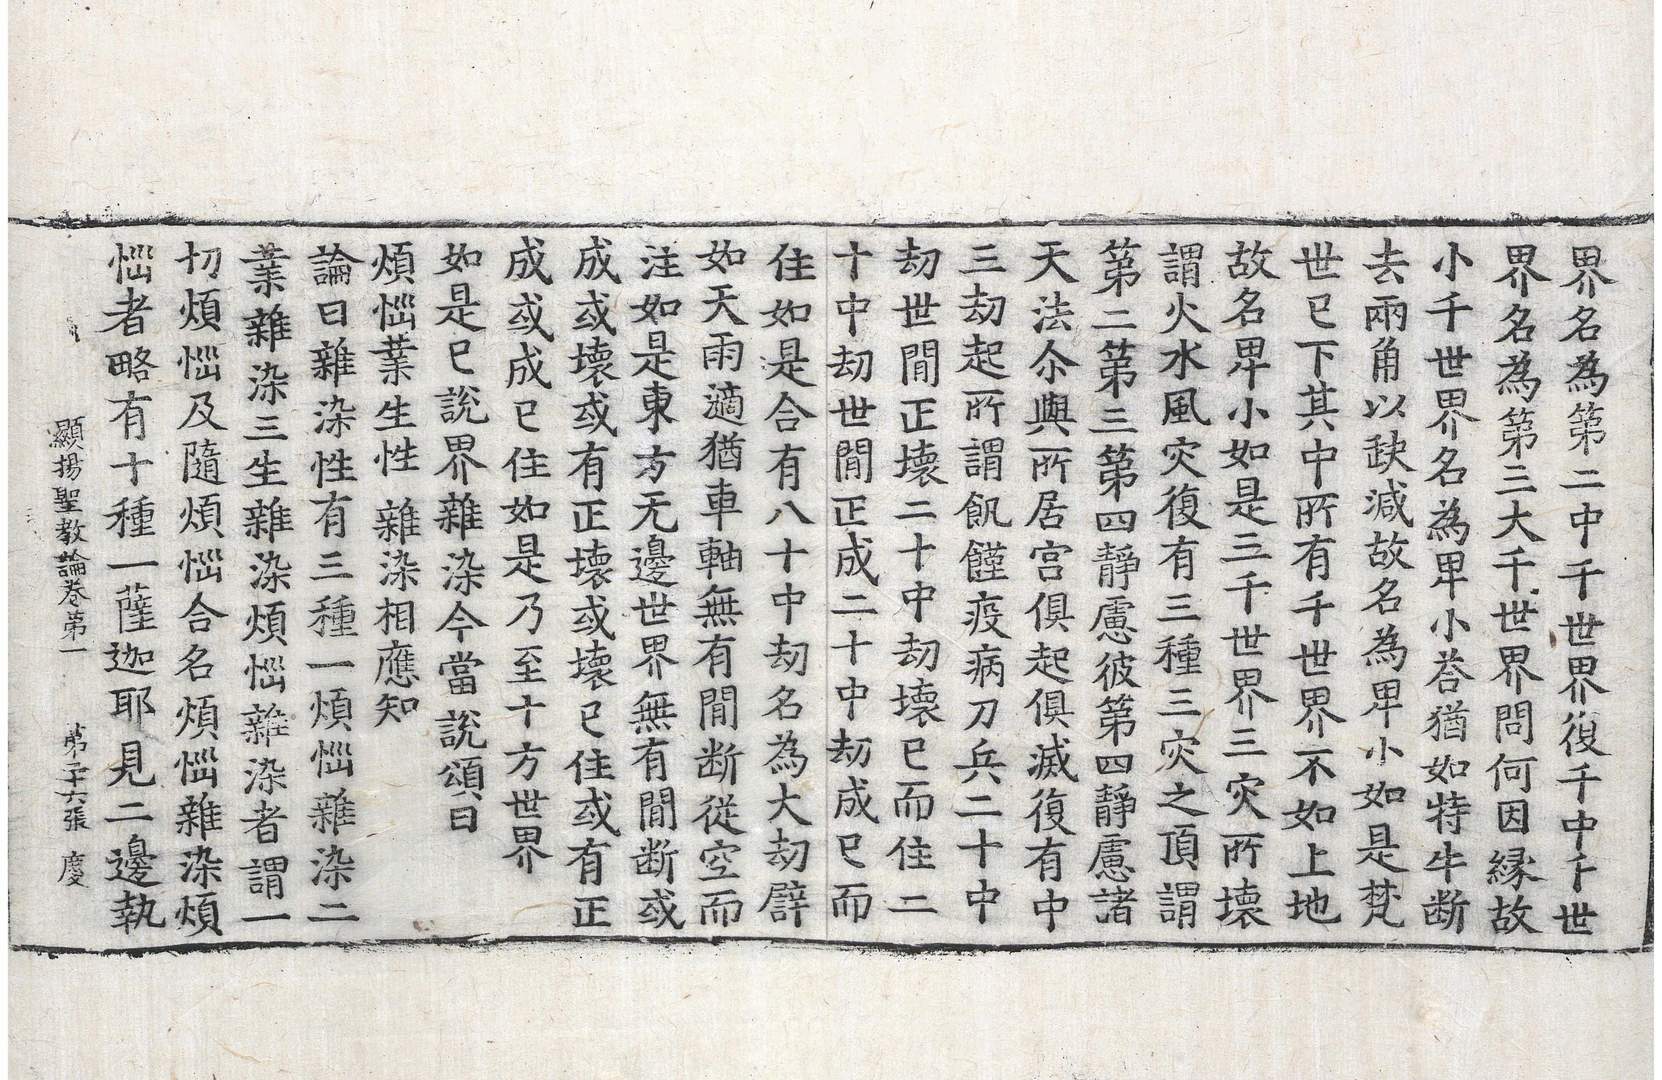 界名為第二中千世界復千中千世
界名為第三大千世界問何因縁故
小千世界名為卑小荅猶如特牛断
去兩角以䟽減故名為卑小如是梵
世已下其中所有千世界不如上地
故名卑小如是三千世界三灾所壞
謂火水風灾復有三種三灾之頂謂
第二第三第四靜慮彼第四靜慮諸
天法尒與所居宫俱起俱滅復有中
三劫起所謂飢饉疫病刀兵二十中
劫世間正壞二十中劫壞已而住二
十中劫世間正成二十中劫成已而
住如是合有八十中劫名為大劫譬
如天雨適猶車軸無有間断從空而
注如是東方无邊世界無有間断或
成或壞或有正壞或壞已住或有正
成或成已住如是乃至十方世界
如是已說界雜染今當說頌曰
煩惱業生性　雜染相應知
論曰雜染性有三種一煩惱雜染二
業雜染三生雜染煩惱雜染者謂一
切煩惱及隨煩惱合名煩惱雜染煩
惱者略有十種一薩迦耶見二邊執
顯揚聖教論卷第一　第二十六張　慶